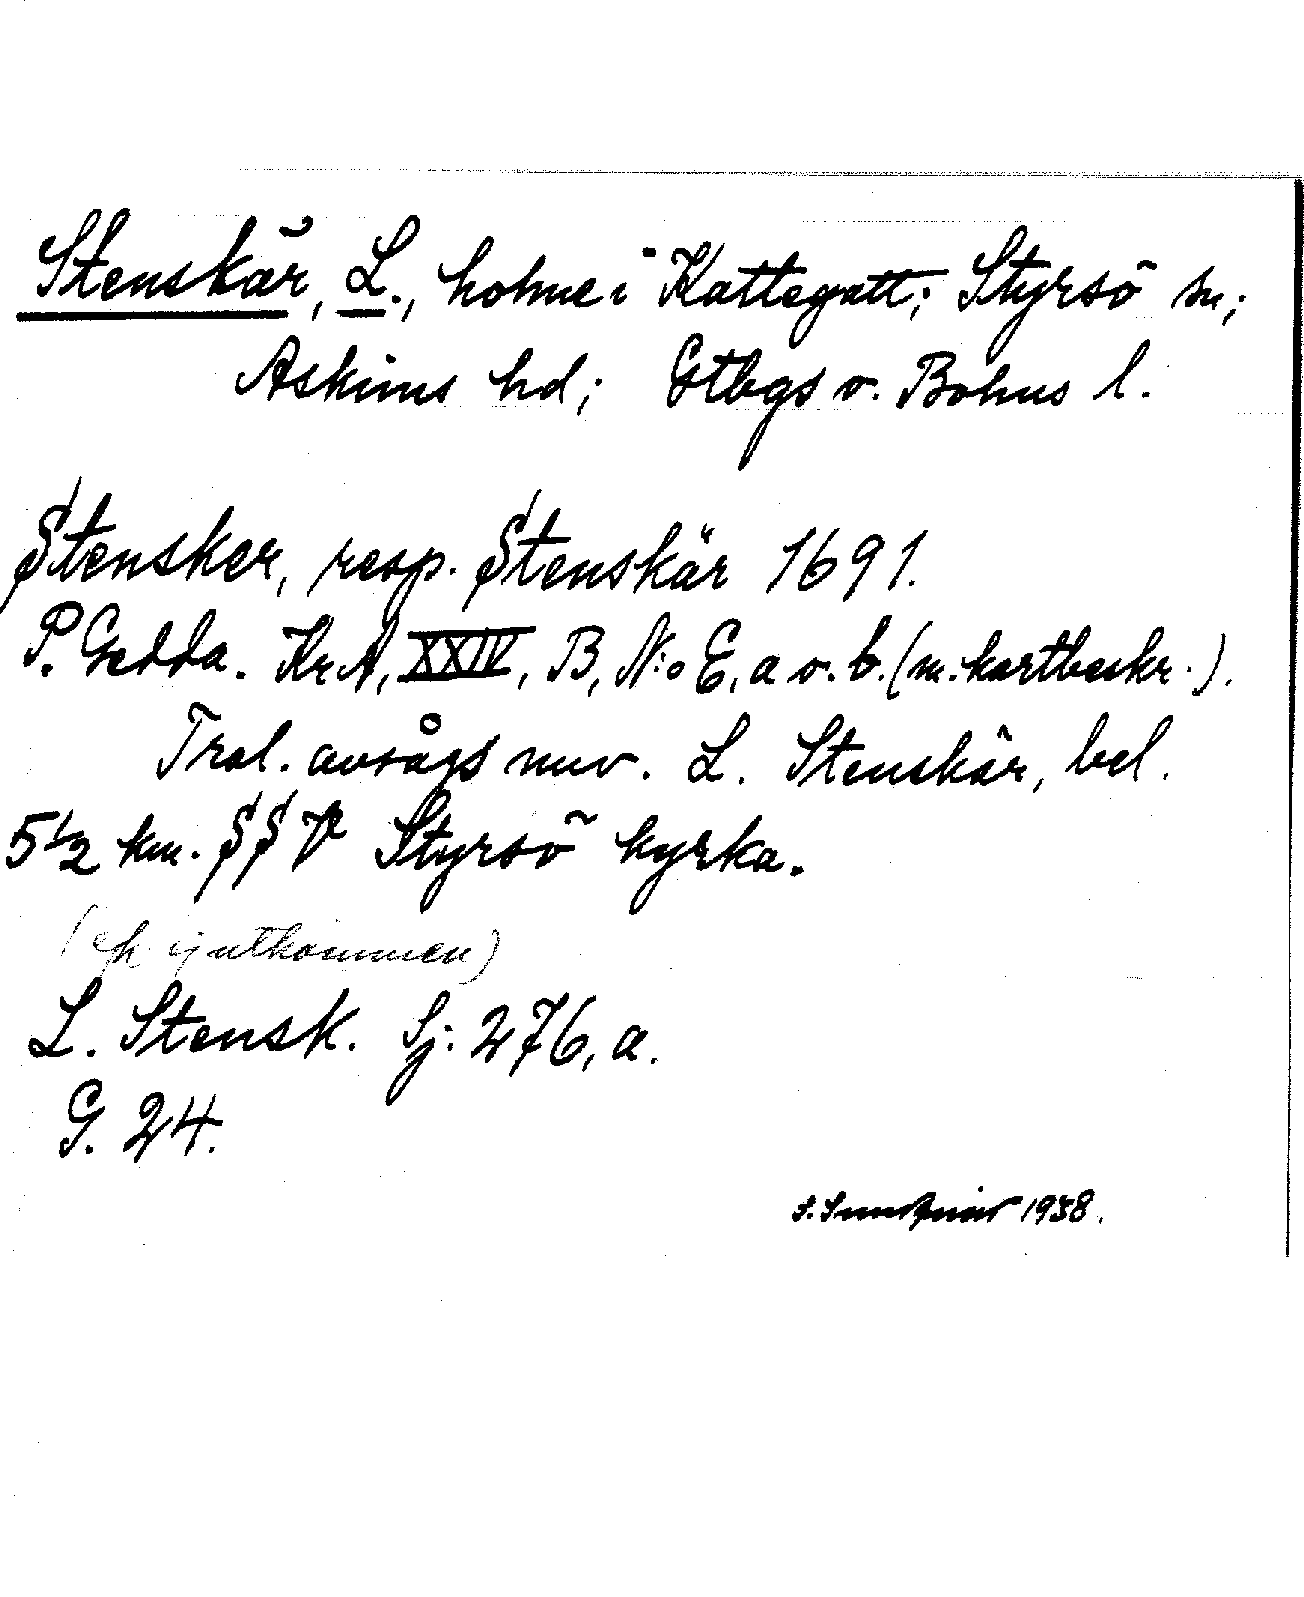 Stenskär, L., holme i Kattegatt; Styrsö sn;
Askims hd; Gtbgs o. Bohus l.
Stensker, resp. Stenskär 1691.
P. Gedda. KrA, XXIV, B, N:o E, a o. b. (m. kartbeskr.).
Trol. avsågs nuv. L. Stenskär, bel.
5½ km. SSV Styrsö kyrka.
(ek ej utkommen)
L. Stensk. Sj. 276, a.
G. 24.
S. 1938.